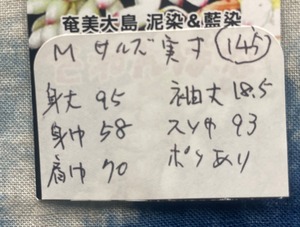 奄美大島 泥染&藍染
M サルズ実寸 145
身丈 95 袖丈 18.5
身巾 58 スソ巾 93
肩巾 70 ポケあり